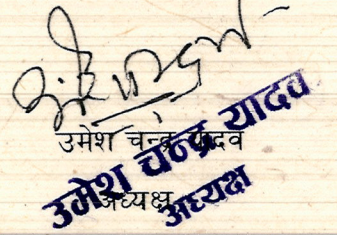 उमेश चन्द्र यादव
अध्यक्ष
उमेश चन्द्र यादव
अध्यक्ष